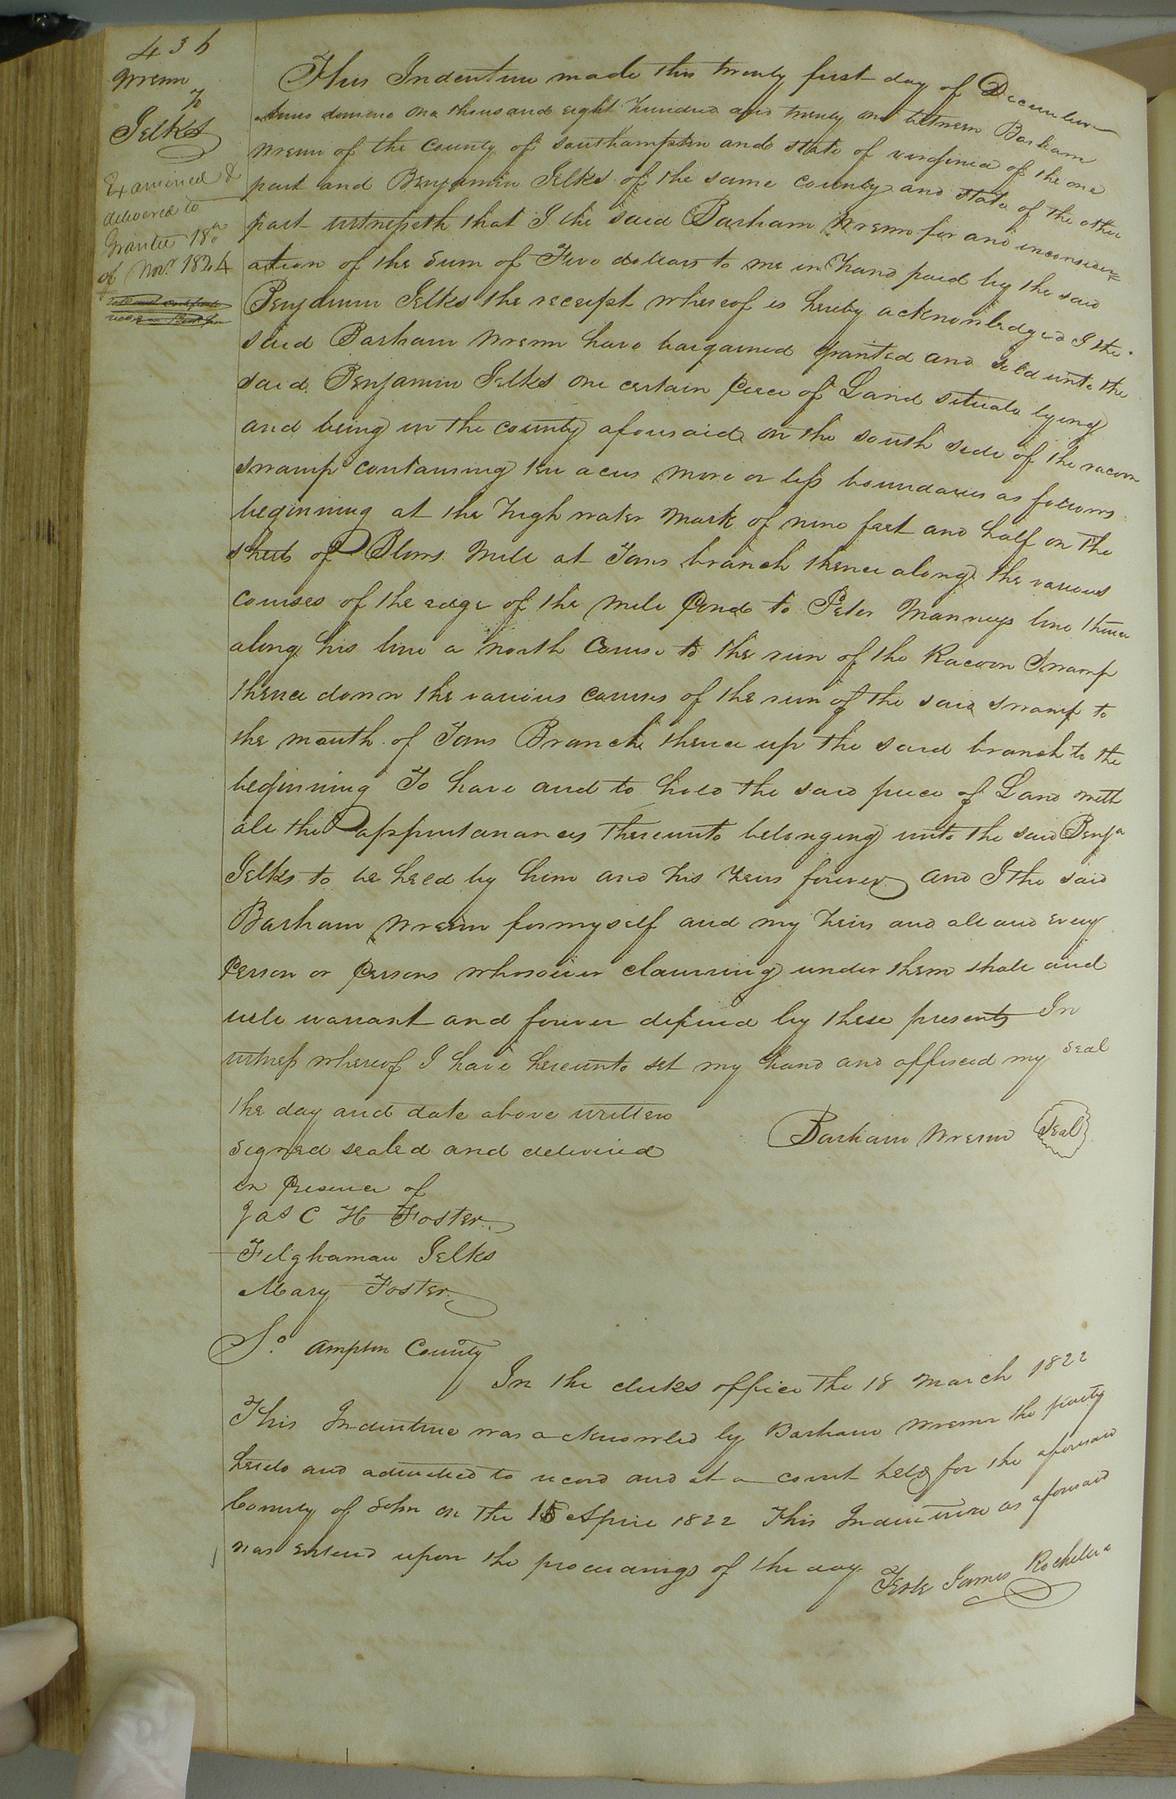 436
Wrenn
To
Jelks
Examined &
delivered to
Grantee 18th
of Novr 1824
This Indenture made this twenty first day of December
annus domino one thousand eight hundred and twenty one between Barham
Wrenn of the County of Southampton and State of virginia of the one
part and Benjamin Jelks of the same County and State of the other
part witnesseth that I the said Barham Wrenn for and inconsider=
ation of the Sum of Five dollars to me in hand paid by the said
Benjamin Jelks the receipt whereof is hereby acknowledged I the
said Barham Wrenn have bargained granted and sold unto the
said Benjamin Jelks one certain piece of Land situate lying
and being in the County aforesaid on the south side of the racoon
swamp containing ten acres more or less boundaries as follows
beginning at the high water mark of nine feet and half on the
sheets of Blows Mill at Tans branch thence along the various
courses of the edge of the mill Pond to Peter Manneys line thence
along his line a north Course to the run of the Racoon Swamp
thence down the various courses of the run of the said swamp to
the mouth of Tans Branch thence up the said branch to the
beginning To have and to hold the said piece of Land with
all the appurtanances thereunto belonging unto the said Benja
Jelks to be held by him and his heirs forever and I the said
Barham Wrenn for myself and my heirs and all and every
Person or Persons whosoever claiming under them shall and
will warrant and forever defend by these presents In
witness whereof I have hereunto set my hand and affixed my seal
the day and date above written
Barham Wrenn Seal
signed sealed and delivered
in Presence of
Jas C H Foster
Tilghaman Jelks
Mary Foster
So ampton County
In the clerks office the 18 March 1822
This Indenture was acknowled by Barham Wrenn the party
hereto and admitted to record and at a court held for the aforesaid
County of Sohn on the 15 April 1822 This Indenture as aforesaid
was entered upon the proceedings of the day
Teste James Rochelle